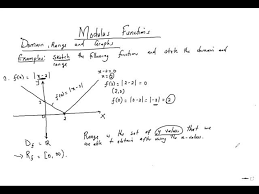 Modulus Functions
Domain, Range and Graphs
Examples: Sketch the following functions and state the domain and
range
1. f(x) = |x-2|
x-2=0
x=2
f(2) = |2-2| = 0
(2,0)
f(0) = |0-2| = |-2| = 2
f(x) = |x-2|
2
Range is the set of y values that we
are able to obtain after using the x-values.
R_f = [0, ∞)